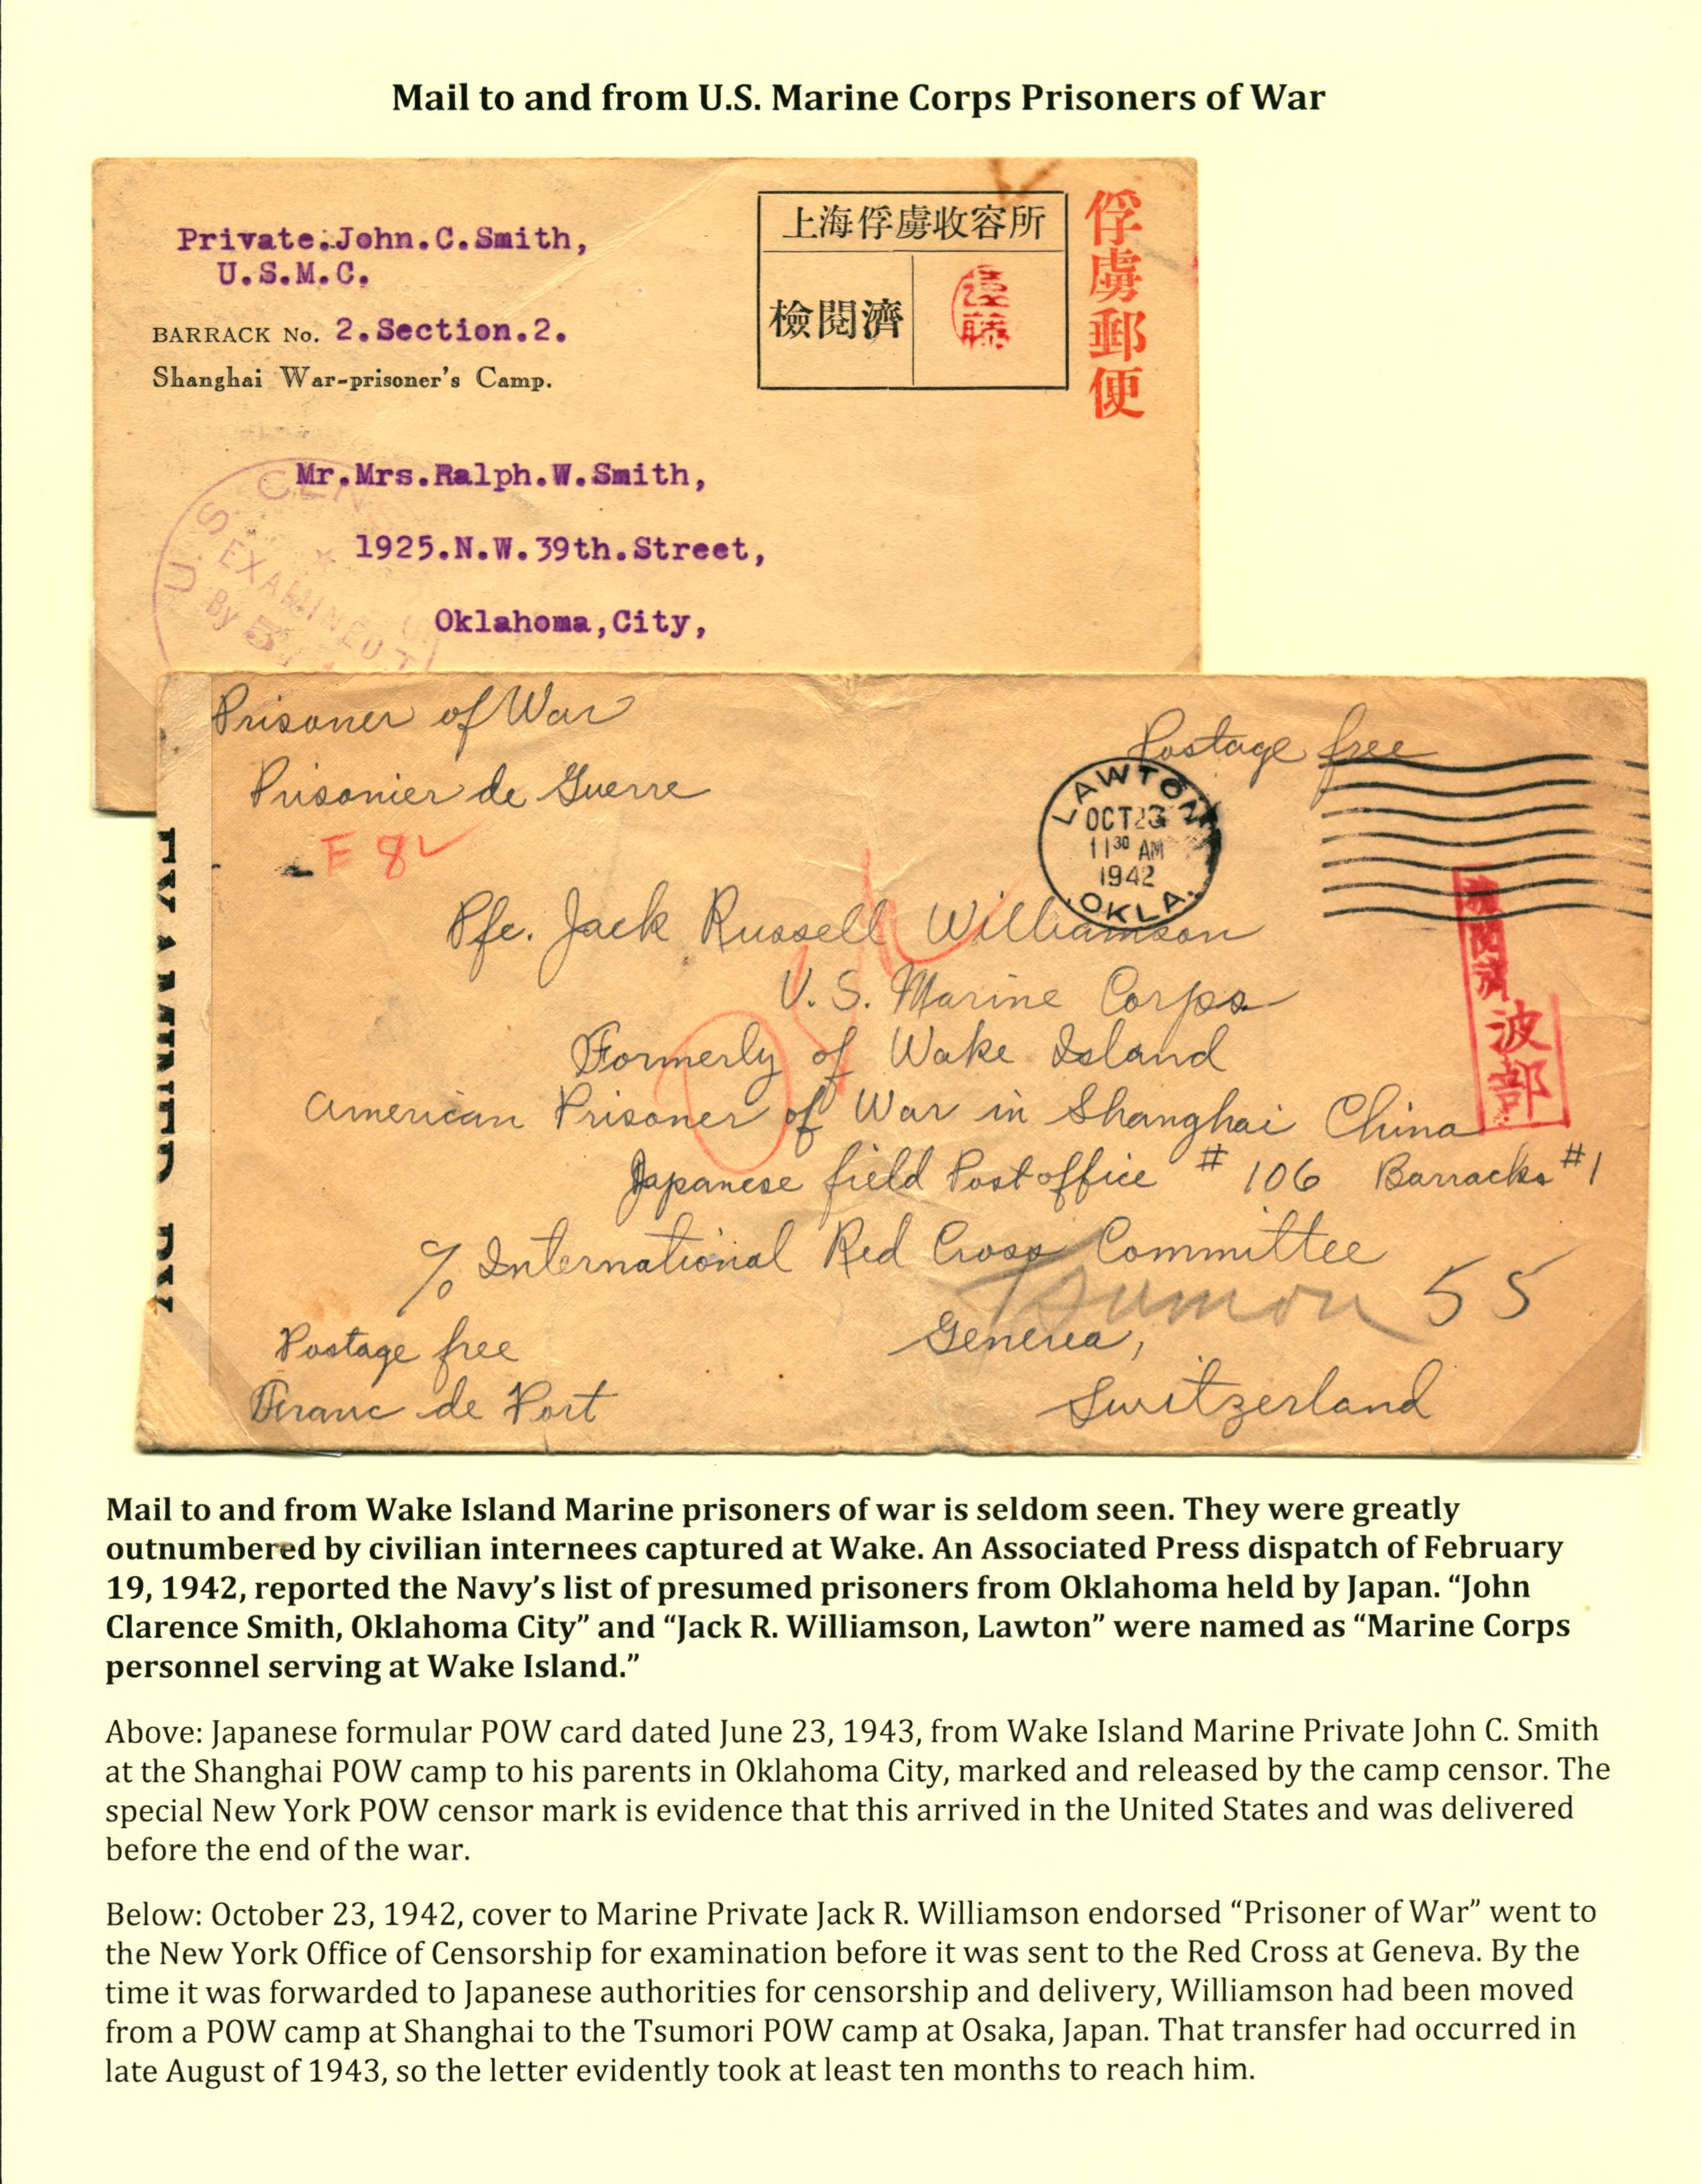 Mail to and from U.S. Marine Corps Prisoners of War
Private.John.C.Smith,
U.S.M.C.
BARRACK No. 2.Section.2.
Shanghai War-prisoner's Camp.
上海俘虜收容所
檢閲濟
遠藤
俘虜郵便
Mr.Mrs.Ralph.W.Smith,
1925.N.W.39th.Street,
Oklahoma,City,
U.S. CENS
EXAMINED
By 5
Prisoner of War
Prisonier de Guerre
Postage free
LAWTON
OCT 23
11 30 AM
1942
OKLA.
E 8
Pfc. Jack Russell Williamson
U.S. Marine Corps
Formerly of Wake Island
American Prisoner of War in Shanghai China
Japanese field Postoffice # 106 Barracks #1
% International Red Cross Committee
Geneva,
Switzerland
Tsumori 55
Postage free
Franc de Port
檢閲濟
波部
EXAMINED BY
Mail to and from Wake Island Marine prisoners of war is seldom seen. They were greatly
outnumbered by civilian internees captured at Wake. An Associated Press dispatch of February
19, 1942, reported the Navy’s list of presumed prisoners from Oklahoma held by Japan. “John
Clarence Smith, Oklahoma City” and “Jack R. Williamson, Lawton” were named as “Marine Corps
personnel serving at Wake Island.”
Above: Japanese formular POW card dated June 23, 1943, from Wake Island Marine Private John C. Smith
at the Shanghai POW camp to his parents in Oklahoma City, marked and released by the camp censor. The
special New York POW censor mark is evidence that this arrived in the United States and was delivered
before the end of the war.
Below: October 23, 1942, cover to Marine Private Jack R. Williamson endorsed “Prisoner of War” went to
the New York Office of Censorship for examination before it was sent to the Red Cross at Geneva. By the
time it was forwarded to Japanese authorities for censorship and delivery, Williamson had been moved
from a POW camp at Shanghai to the Tsumori POW camp at Osaka, Japan. That transfer had occurred in
late August of 1943, so the letter evidently took at least ten months to reach him.